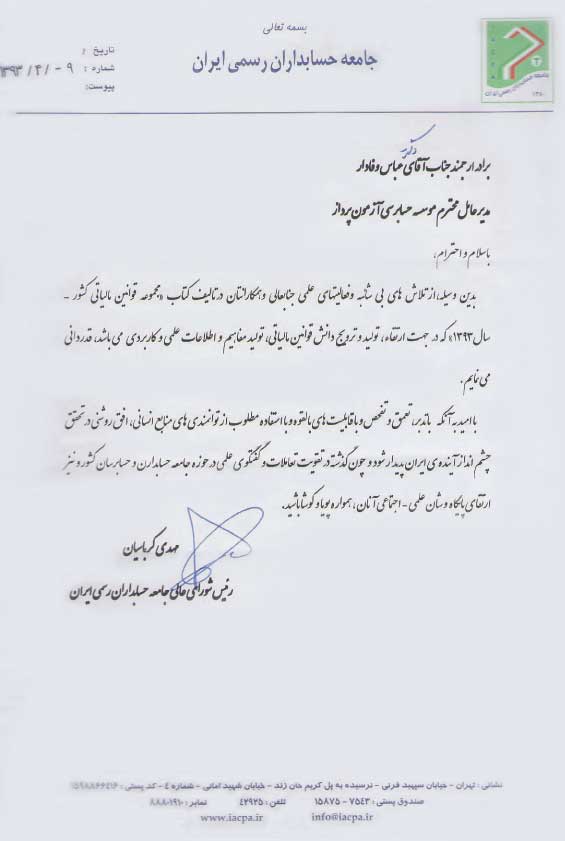 بسمه تعالی
جامعه حسابداران رسمی ایران
تاریخ :
شماره : ۱۳۹۳/۴/-۹
پیوست:
جامعه حسابداران رسمی ایران
۱۳۸۰
دکتر
برادر ارجمند جناب آقای عباس وفادار
مدیر عامل محترم موسسه حسابرسی آزمون پرداز
با سلام و احترام،
بدین وسیله، از تلاش های بی شائبه و فعالیتهای علمی جنابعالی و همکارانتان در تالیف کتاب «مجموعه قوانین مالیاتی کشور -
سال ۱۳۹۳» که در جهت ارتقاء، تولید و ترویج دانش قوانین مالیاتی، تولید مفاهیم و اطلاعات علمی و کاربردی می باشد، قدردانی
می نمایم.
با امید به آنکه با تدبر، تعمق و تفحص و با قابلیت های بالقوه و با استفاده مطلوب از توانمندی های منابع انسانی، افق روشنی در تحقق
چشم انداز آینده ی ایران پدیدار شود و چون گذشته در تقویت تعاملات و گفتگوی علمی در حوزه جامعه حسابدارن و حسابرسان کشور و نیز
ارتقای پایگاه و شان علمی - اجتماعی آنان، همواره پویا و کوشا باشید.
مهدی کرباسیان
رئیس شورای عالی جامعه حسابداران رسمی ایران
نشانی : تهران - خیابان سپهبد قرنی - نرسیده به پل کریم خان زند - خیابان شهید امانی - شماره ٤ - کد پستی : ۱۵۹۸۸۶۶۴۱۶
صندوق پستی : ۷۵۴۳ - ۱۵۸۷۵ تلفن : ۴۲۹۲۵ نمابر : ۸۸۸۰۱۹۱۰
www.iacpa.ir info@iacpa.ir